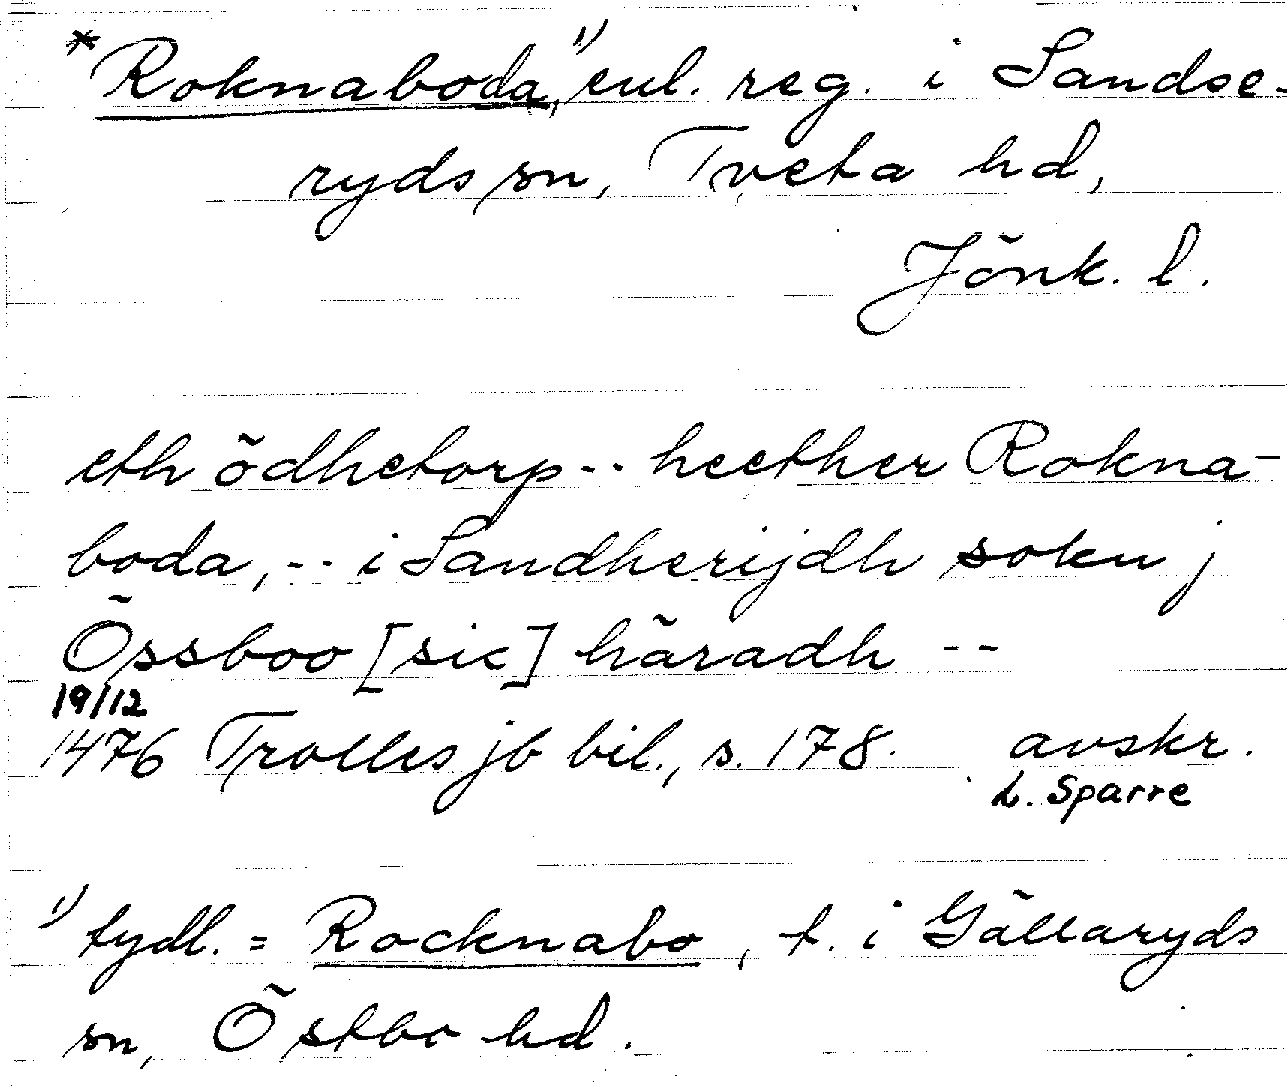 *Roknaboda,¹⁾ enl. reg. i Sandse-
ryds sn, Tveta hd,
Jönk. l.
eth ödhetorp -- heether Rokna-
boda, -- i Sandherijdh sokn j
Össboo [sic] häradh --
19/12
1476 Trolles jb bil., s. 178. avskr.
L. Sparre
¹⁾ tydl. = Rocknabo, t. i Gällaryds
sn, Östbo hd.